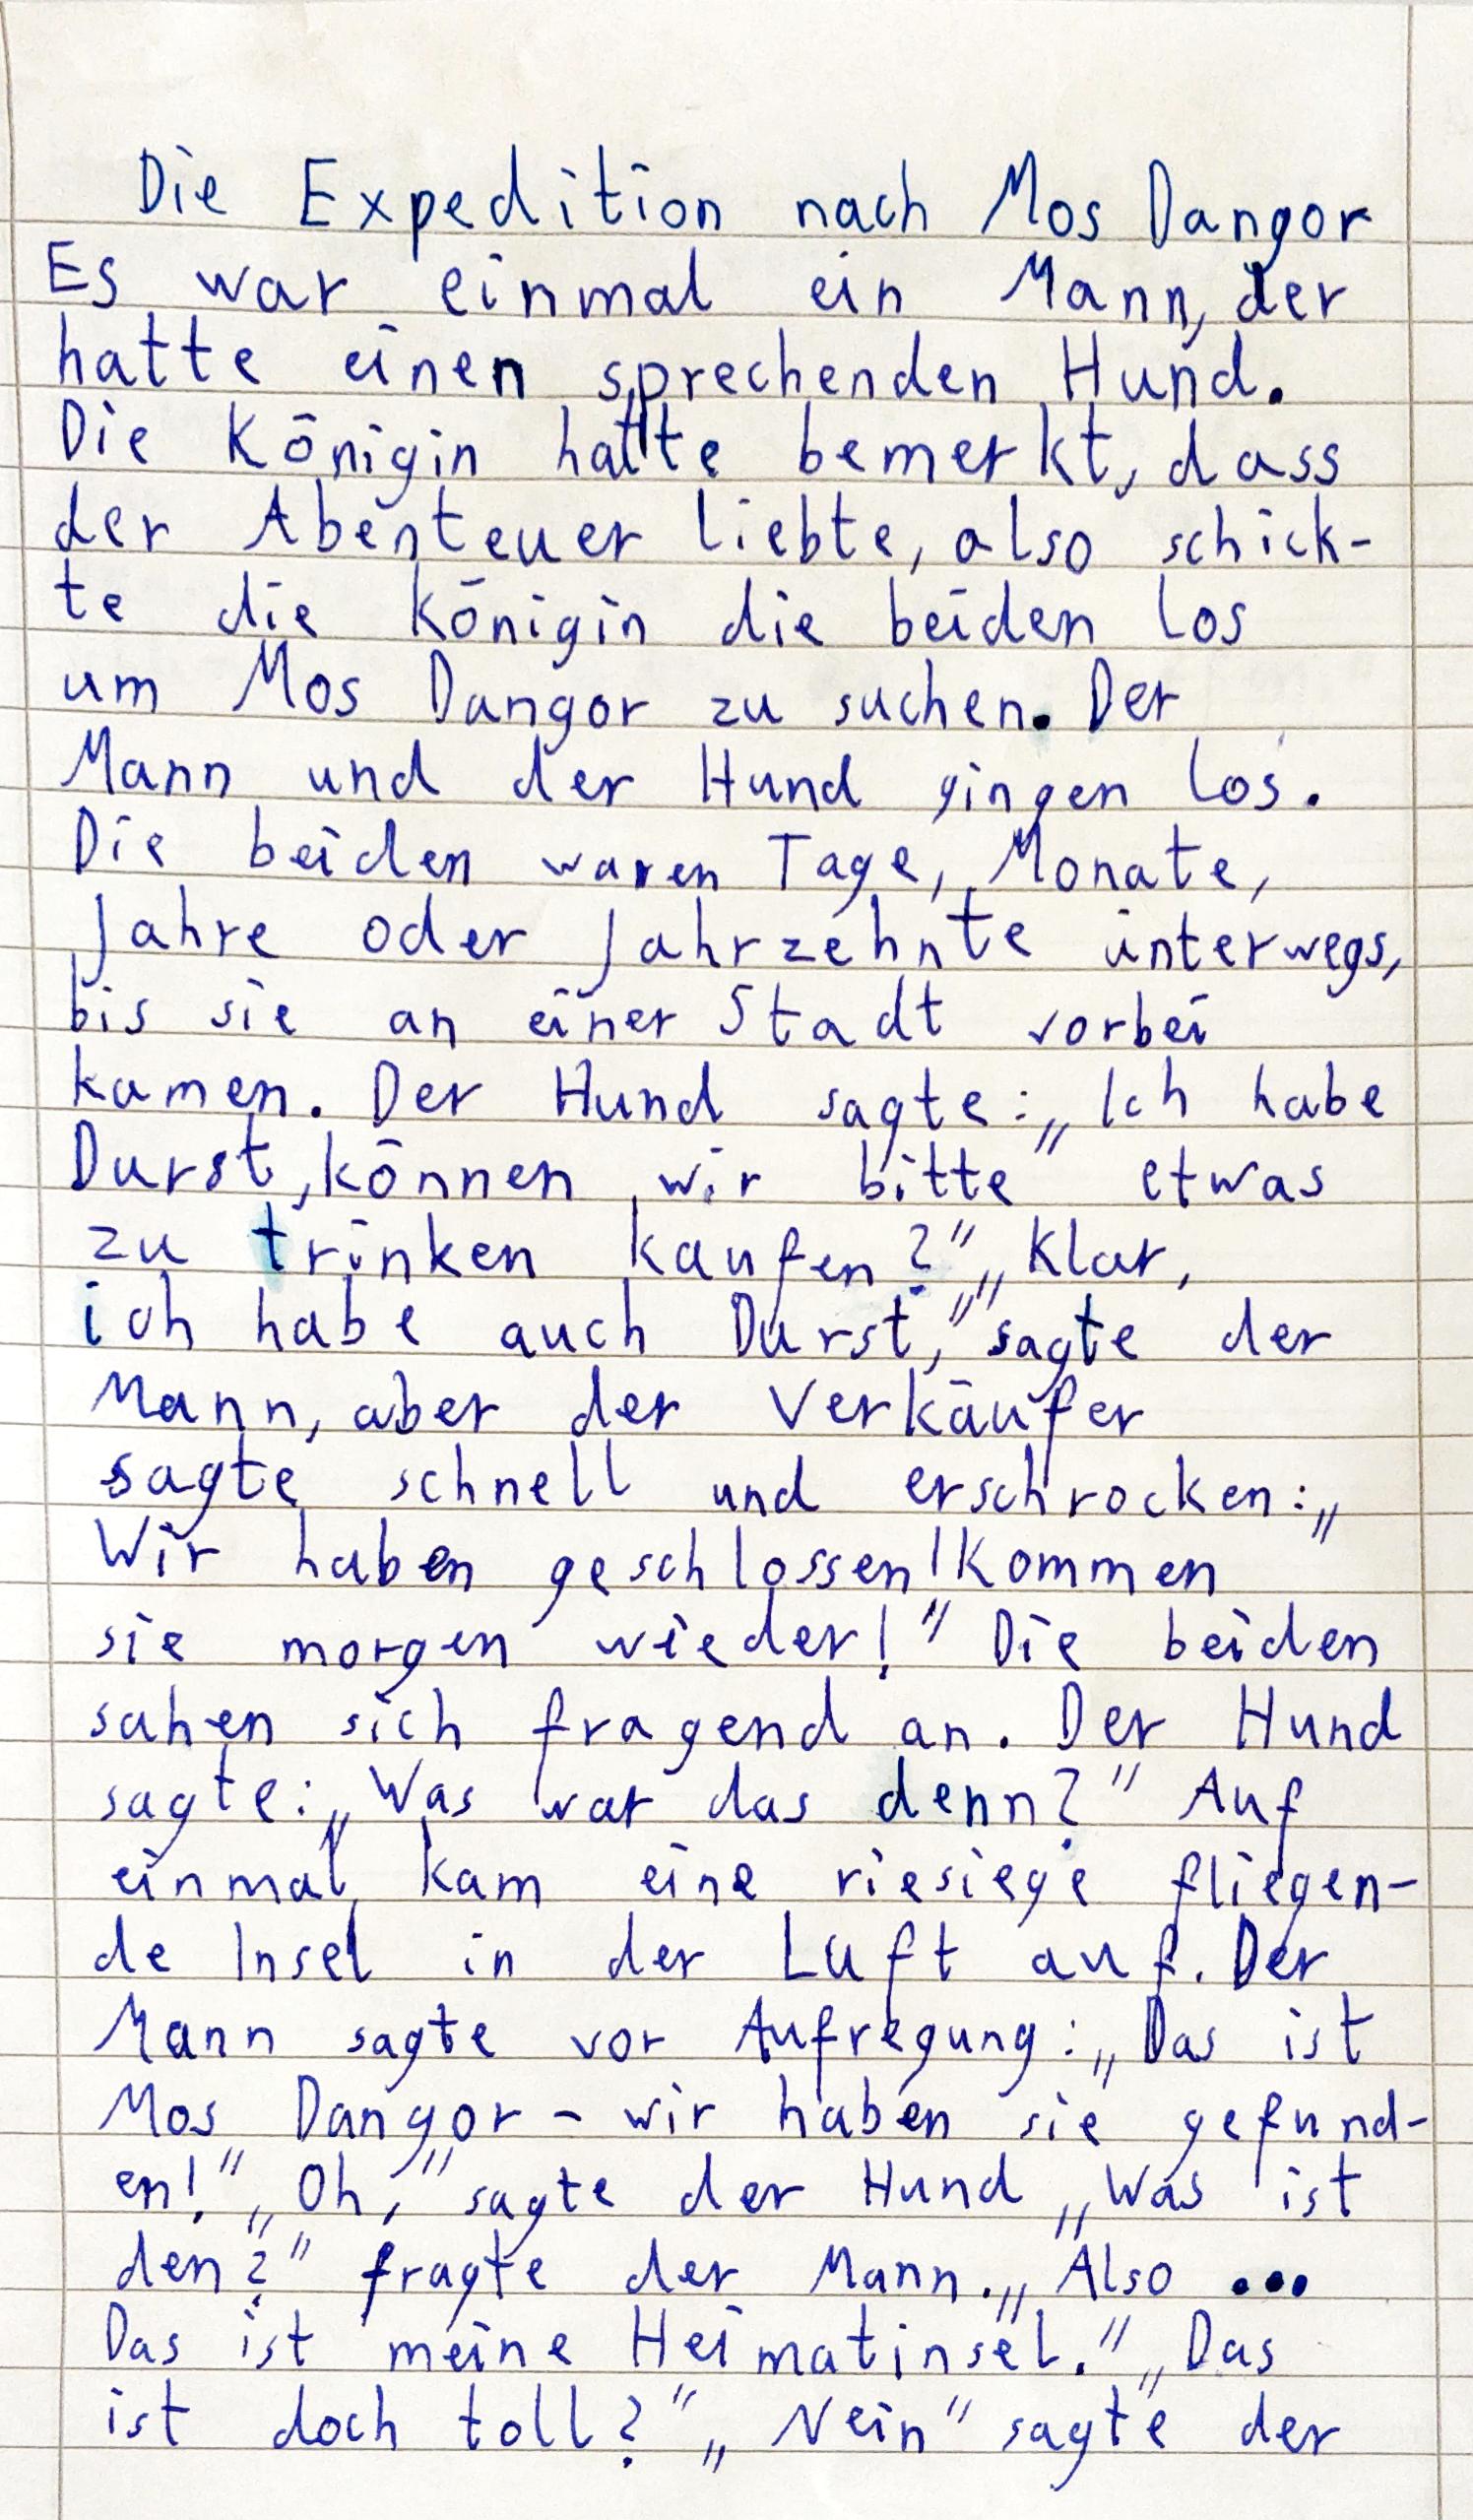 Die Expedition nach Mos Dangor
Es war einmal ein Mann, der
hatte einen sprechenden Hund.
Die Königin hatte bemerkt, dass
der Abenteuer liebte, also schick-
te die Königin die beiden los
um Mos Dangor zu suchen. Der
Mann und der Hund gingen los.
Die beiden waren Tage, Monate,
Jahre oder Jahrzehnte unterwegs,
bis sie an einer Stadt vorbei
kamen. Der Hund sagte: „Ich habe
Durst, können wir bitte etwas
zu trinken kaufen?" „Klar,
ich habe auch Durst," sagte der
Mann, aber der Verkäufer
sagte schnell und erschrocken: „
Wir haben geschlossen! Kommen
sie morgen wieder!" Die beiden
sahen sich fragend an. Der Hund
sagte: „Was war das denn?" Auf
einmal kam eine riesiege fliegen-
de Insel in der Luft auf. Der
Mann sagte vor Aufregung: „Das ist
Mos Dangor - wir haben sie gefund-
en!" „Oh," sagte der Hund „Was ist
den?" fragte der Mann. „Also ...
Das ist meine Heimatinsel." „Das
ist doch toll?" „Nein" sagte der